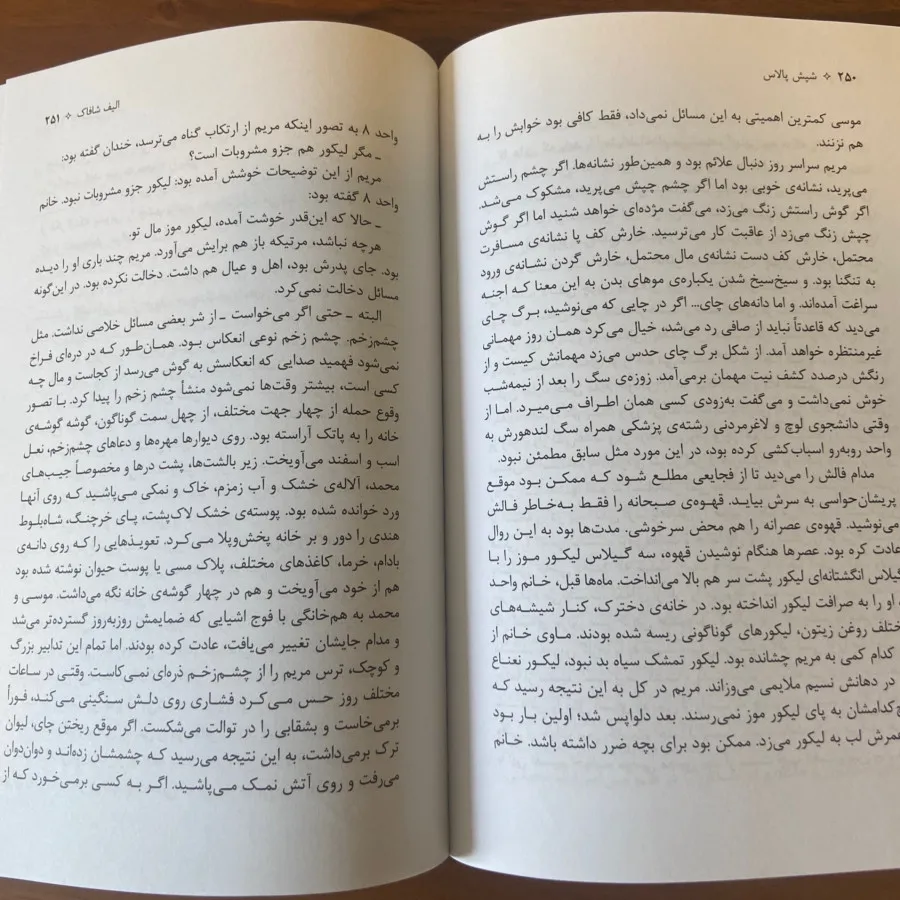 ۲۵۰ ✧ شپش پالاس
موسی کمترین اهمیتی به این مسائل نمی‌داد، فقط کافی بود خوابش را به
هم نزنند.
مریم سراسر روز دنبال علائم بود و همین‌طور نشانه‌ها. اگر چشم راستش
می‌پرید، نشانه‌ی خوبی بود اما اگر چشم چپش می‌پرید، مشکوک می‌شد.
اگر گوش راستش زنگ می‌زد، می‌گفت مژده‌ای خواهد شنید اما اگر گوش
چپش زنگ می‌زد از عاقبت کار می‌ترسید. خارش کف پا نشانه‌ی مسافرت
محتمل، خارش کف دست نشانه‌ی مال محتمل، خارش گردن نشانه‌ی ورود
به تنگنا بود. و سیخ‌سیخ شدن یکباره‌ی موهای بدن به این معنا که اجنه
سراغت آمده‌اند. و اما دانه‌های چای... اگر در چایی که می‌نوشید، برگ چای
می‌دید که قاعدتاً نباید از صافی رد می‌شد، خیال می‌کرد همان روز مهمانی
غیرمنتظره خواهد آمد. از شکل برگ چای حدس می‌زد مهمانش کیست و از
رنگش درصدد کشف نیت مهمان برمی‌آمد. زوزه‌ی سگ را بعد از نیمه‌شب
خوش نمی‌داشت و می‌گفت به‌زودی کسی همان اطراف می‌میرد. اما از
وقتی دانشجوی لوچ و لاغرمردنی رشته‌ی پزشکی همراه سگ لندهورش به
واحد روبه‌رو اسباب‌کشی کرده بود، در این مورد مثل سابق مطمئن نبود.
مدام فالش را می‌دید تا از فجایعی مطلع شود که ممکن بود موقع
پریشان‌حواسی به سرش بیاید. قهوه‌ی صبحانه را فقط به‌خاطر فالش
می‌نوشید. قهوه‌ی عصرانه را هم محض سرخوشی. مدت‌ها بود به این روال
عادت کره بود. عصرها هنگام نوشیدن قهوه، سه گیلاس لیکور موز را با
گیلاس انگشتانه‌ای لیکور پشت سر هم بالا می‌انداخت. ماه‌ها قبل، خانم واحد
او را به صرافت لیکور انداخته بود. در خانه‌ی دخترک، کنار شیشه‌های
مختلف روغن زیتون، لیکورهای گوناگونی ریسه شده بودند. ماوی خانم از
کدام کمی به مریم چشانده بود. لیکور تمشک سیاه بد نبود، لیکور نعناع
در دهانش نسیم ملایمی می‌وزاند. مریم در کل به این نتیجه رسید که
چ‌کدامشان به پای لیکور موز نمی‌رسند. بعد دلواپس شد؛ اولین بار بود
عمرش لب به لیکور می‌زد. ممکن بود برای بچه ضرر داشته باشد. خانم
الیف شافاک ✧ ۲۵۱
واحد ۸ به تصور اینکه مریم از ارتکاب گناه می‌ترسد، خندان گفته بود:
ـ مگر لیکور هم جزو مشروبات است؟
مریم از این توضیحات خوشش آمده بود: لیکور جزو مشروبات نبود. خانم
واحد ۸ گفته بود:
ـ حالا که این‌قدر خوشت آمده، لیکور موز مال تو.
هرچه نباشد، مرتیکه باز هم برایش می‌آورد. مریم چند باری او را دیده
بود. جای پدرش بود، اهل و عیال هم داشت. دخالت نکرده بود. در این‌گونه
مسائل دخالت نمی‌کرد.
البته ـ حتی اگر می‌خواست ـ از شر بعضی مسائل خلاصی نداشت. مثل
چشم‌زخم. چشم زخم نوعی انعکاس بود. همان‌طور که در دره‌ای فراخ
نمی‌شود فهمید صدایی که انعکاسش به گوش می‌رسد از کجاست و مال چه
کسی است، بیشتر وقت‌ها نمی‌شود منشأ چشم زخم را پیدا کرد. با تصور
وقوع حمله از چهار جهت مختلف، از چهل سمت گوناگون، گوشه گوشه‌ی
خانه را به پاتک آراسته بود. روی دیوارها مهره‌ها و دعاهای چشم‌زخم، نعل
اسب و اسفند می‌آویخت. زیر بالشت‌ها، پشت درها و مخصوصاً جیب‌های
محمد، آلاله‌ی خشک و آب زمزم، خاک و نمکی می‌پاشید که روی آنها
ورد خوانده شده بود. پوسته‌ی خشک لاک‌پشت، پای خرچنگ، شاه‌بلوط
هندی را دور و بر خانه پخش‌وپلا می‌کرد. تعویذهایی را که روی دانه‌ی
بادام، خرما، کاغذهای مختلف، پلاک مسی یا پوست حیوان نوشته شده بود
هم از خود می‌آویخت و هم در چهار گوشه‌ی خانه نگه می‌داشت. موسی و
محمد به هم‌خانگی با فوج اشیایی که ضمایمش روزبه‌روز گسترده‌تر می‌شد
و مدام جایشان تغییر می‌یافت، عادت کرده بودند. اما تمام این تدابیر بزرگ
و کوچک، ترس مریم را از چشم‌زخم ذره‌ای نمی‌کاست. وقتی در ساعات
مختلف روز حس می‌کرد فشاری روی دلش سنگینی می‌کند، فوراً
برمی‌خاست و بشقابی را در توالت می‌شکست. اگر موقع ریختن چای، لیوان
ترک برمی‌داشت، به این نتیجه می‌رسید که چشمشان زده‌اند و دوان‌دوان
می‌رفت و روی آتش نمک می‌پاشید. اگر به کسی برمی‌خورد که از